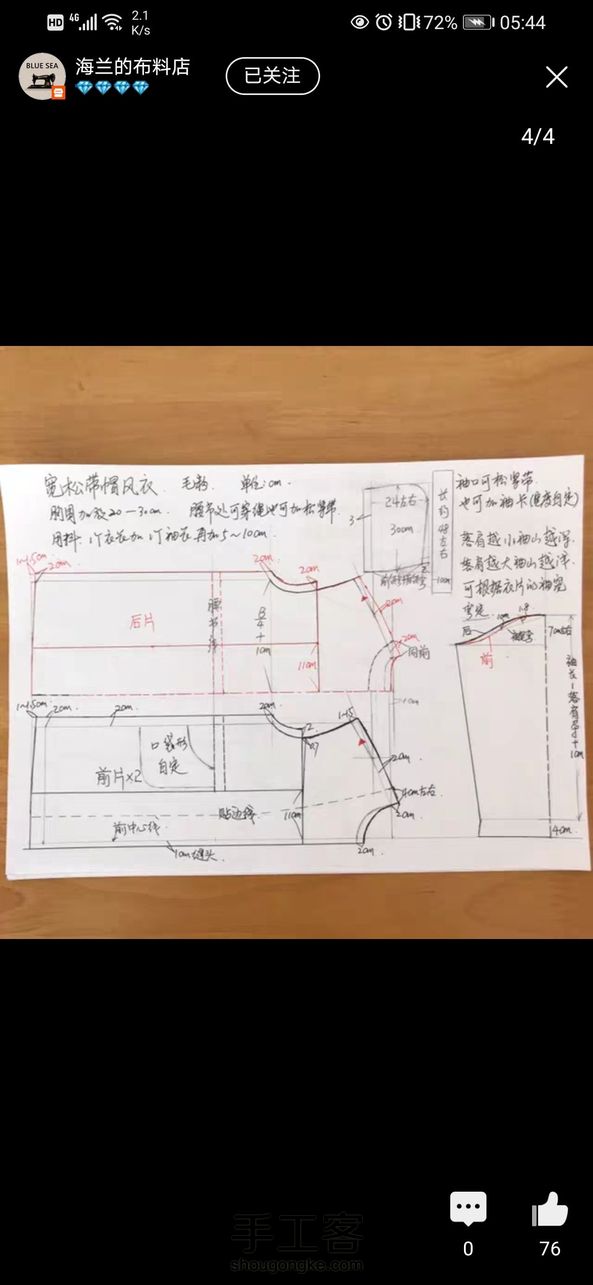 HD 4G 2.1 K/s 72% 05:44
BLUE SEA
海兰的布料店
已关注
4/4
宽松带帽风衣. 毛粉. 单位:cm.
胸围加放20—30cm. 腰节处可穿绳也可加松紧带.
用料: 1个衣长加 1个袖长再加5~10cm.
24左右
3
30cm
长约48左右
10cm
袖口可松紧带
也可加袖卡(宽度自定)
落肩越小袖山越深.
落肩越大袖山越浅.
可根据衣片的袖宽
定.
1~1.5cm
2cm
2cm
2cm
后片
腰节线
B/4+1cm
11cm
2cm
2cm
同前
后
1cm
1.8
7cm左右
前
袖长-落肩+1cm
4cm
1~1.5cm
2cm
2cm
2cm
2
1~1.5
口袋形
自定
前片×2
2cm
4cm左右
2cm
贴边线
11cm
前中心线
1cm缝头
2cm
手工客
shougongke.com
0
76